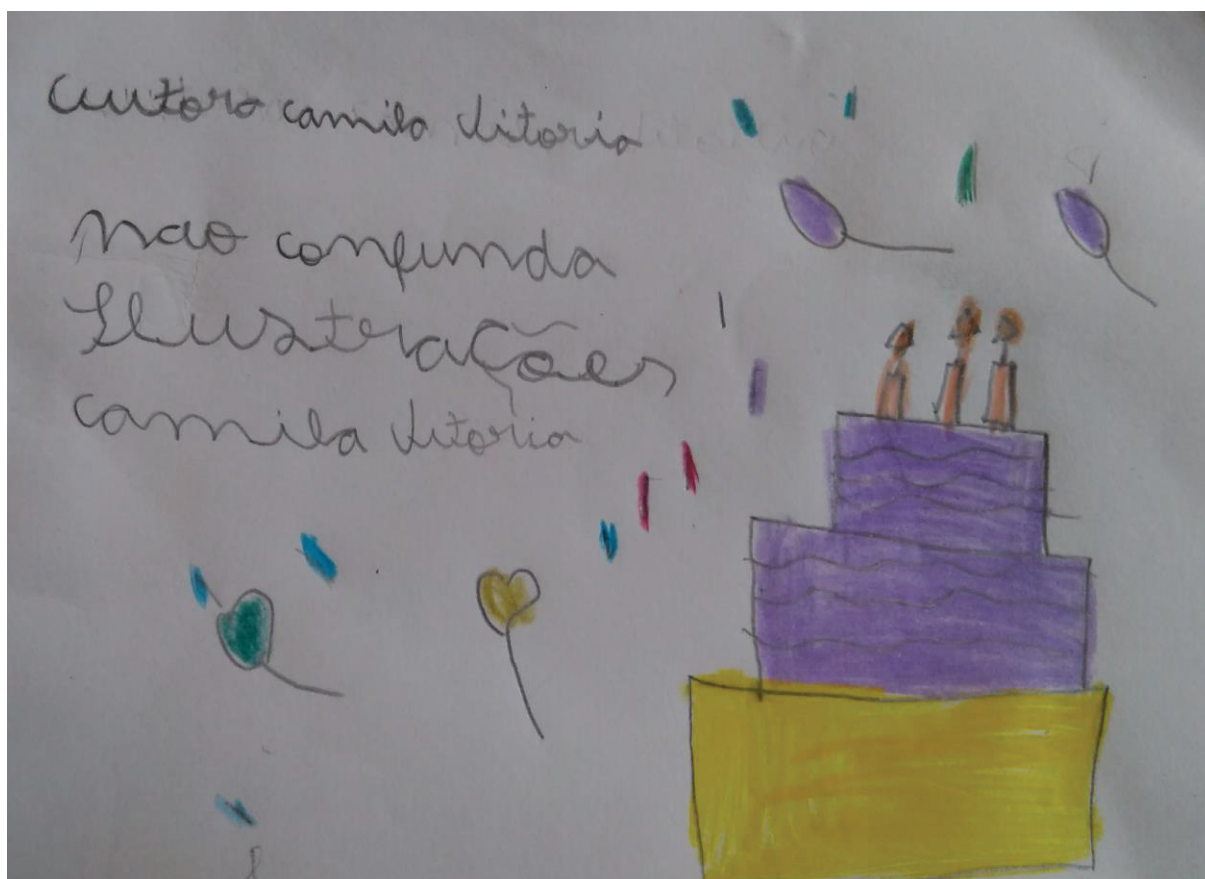 autora camila vitoria
nao confunda
Ilustrações
camila vitoria